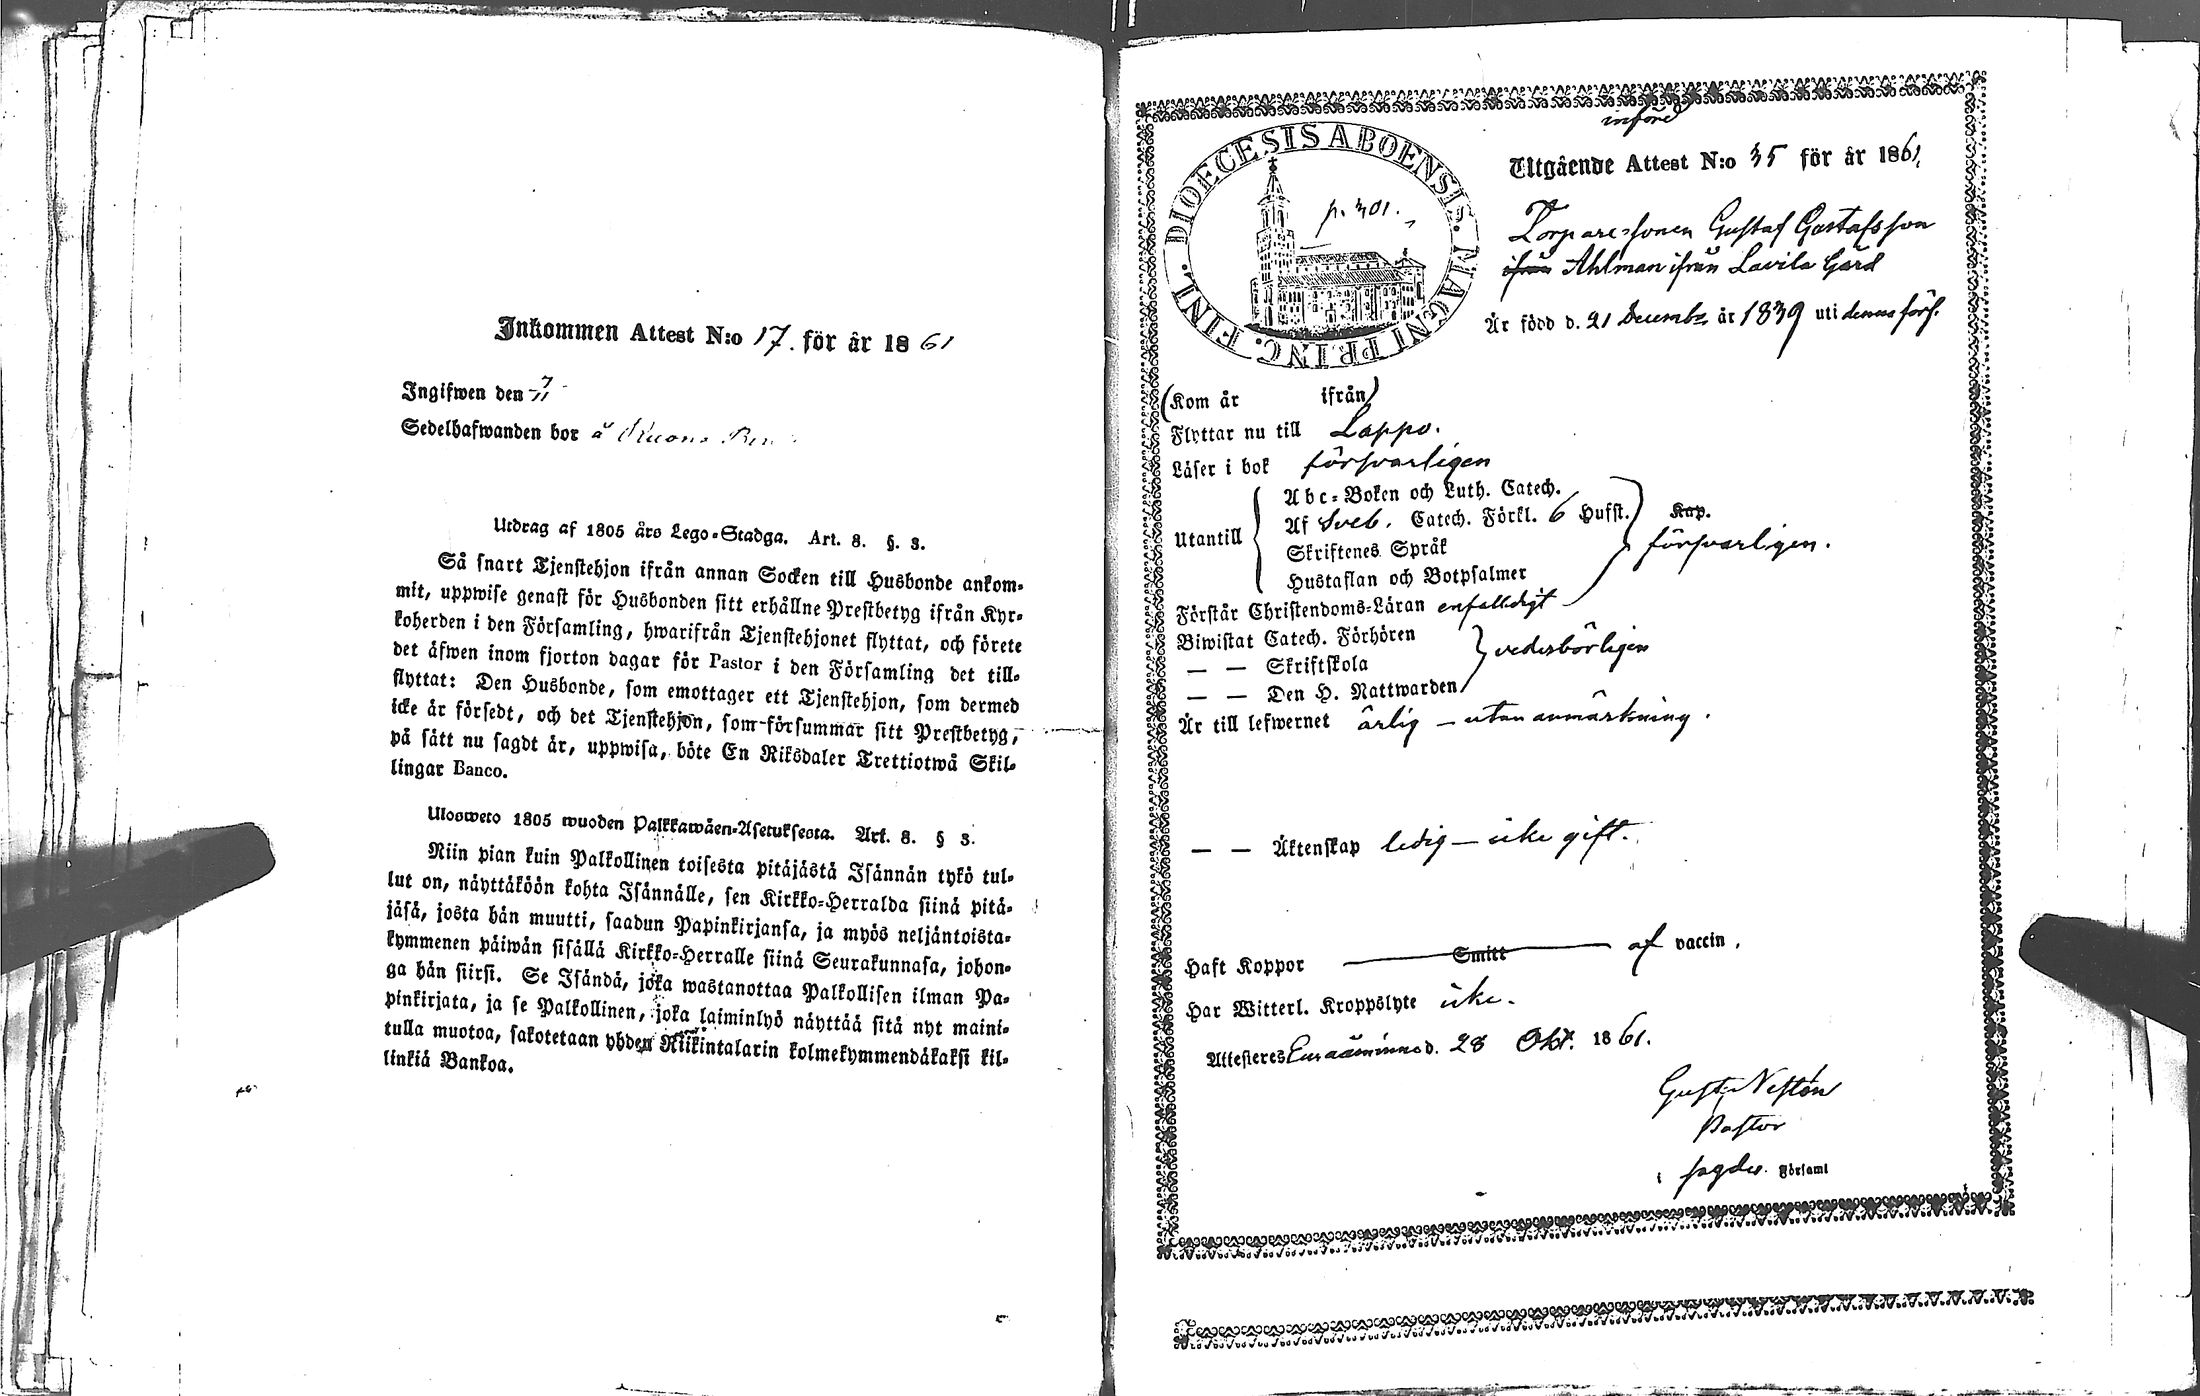 Inkommen Attest N:o 17. för år 1861
Ingifwen den 7/11
Sedelhafwanden bor å
Utdrag af 1805 års Lego-Stadga. Art. 8. §. 3.
Så snart Tjenstehjon ifrån annan Socken till Husbonde ankom-
mit, uppwise genast för Husbonden sitt erhållne Prestbetyg ifrån Kyr-
koherden i den Församling, hwarifrån Tjenstehjonet flyttat, och förete
det äfwen inom fjorton dagar för Pastor i den Församling det till-
flyttat: Den Husbonde, som emottager ett Tjenstehjon, som dermed
icke är försedt, och det Tjenstehjon, som försummar sitt Prestbetyg,
på sätt nu sagdt är, uppwisa, böte En Riksdaler Trettiotwå Skil-
lingar Banco.
Ulosweto 1805 wuoden Palkkawäen-Asetuksesta. Art. 8. § 3.
Niin pian kuin Palkollinen toisesta pitäjästä Isännän tykö tul-
lut on, näyttäköön kohta Isännälle, sen Kirkko-Herralda siinä pitä-
jäsä, josta hän muutti, saadun Papinkirjansa, ja myös neljäntoista-
kymmenen päiwän sisällä Kirkko-Herralle siinä Seurakunnasa, johon-
ga hän siirsi. Se Isändä, joka wastanottaa Palkollisen ilman Pa-
pinkirjata, ja se Palkollinen, joka laiminlyö näyttää sitä nyt maini-
tulla muotoa, sakotetaan yhden Riikintalarin kolmekymmendäkaksi kil-
linkiä Bankoa.
införd
DIOECESIS ABOENSIS. MAGNI PRINC. FINL.
p. 301.
Utgående Attest N:o 35 för år 1861.
Torparesonen Gustaf Gustafsson
ifrån Ahlman ifrån Lavila Gård
Är född d. 21 Decembr år 1839 uti denna förs.
(Kom år ifrån)
Flyttar nu till Lappo.
Läser i bok försvarligen
Utantill
Abc-Boken och Luth. Catech.
Af Sveb. Catech. Förkl. 6 Hufst. Kap.
Skriftenes Språk
Hustaflan och Botpsalmer
försvarligen.
Förstår Christendoms-Läran enfalldigt
Biwistat Catech. Förhören
— — Skriftskola
— — Den H. Nattwarden
vederbörligen
Är till lefwernet ärlig – utan anmärkning.
— — Äktenskap ledig – icke gift.
Haft Koppor Smitt af vaccin.
Har Witterl. Kroppslyte icke.
Attesteres Euraåminne d. 28 Okt. 1861.
Pastor
i sagde Församl